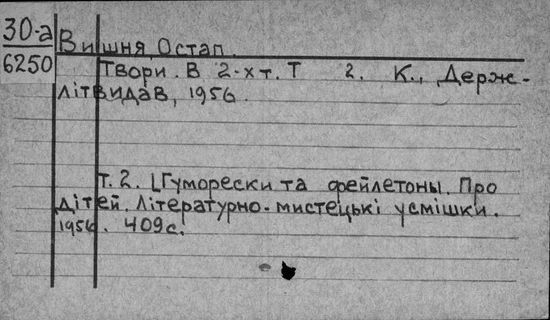 30-а
6250
Вишня Остап.
Твори. В 2-х т. Т 2. К., Держ-
літвидав, 1956.
Т. 2. [Гуморески та фейлетоны. Про
дітей. Літературно-мистецькі усмішки.
1956. 409с.